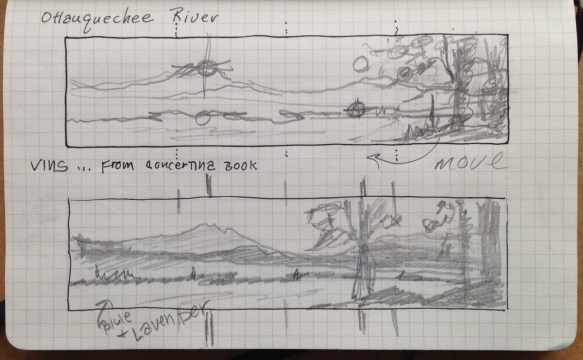 Ottauquechee River
VINS ... From Concertina Book
move
Blue
+ Lavender